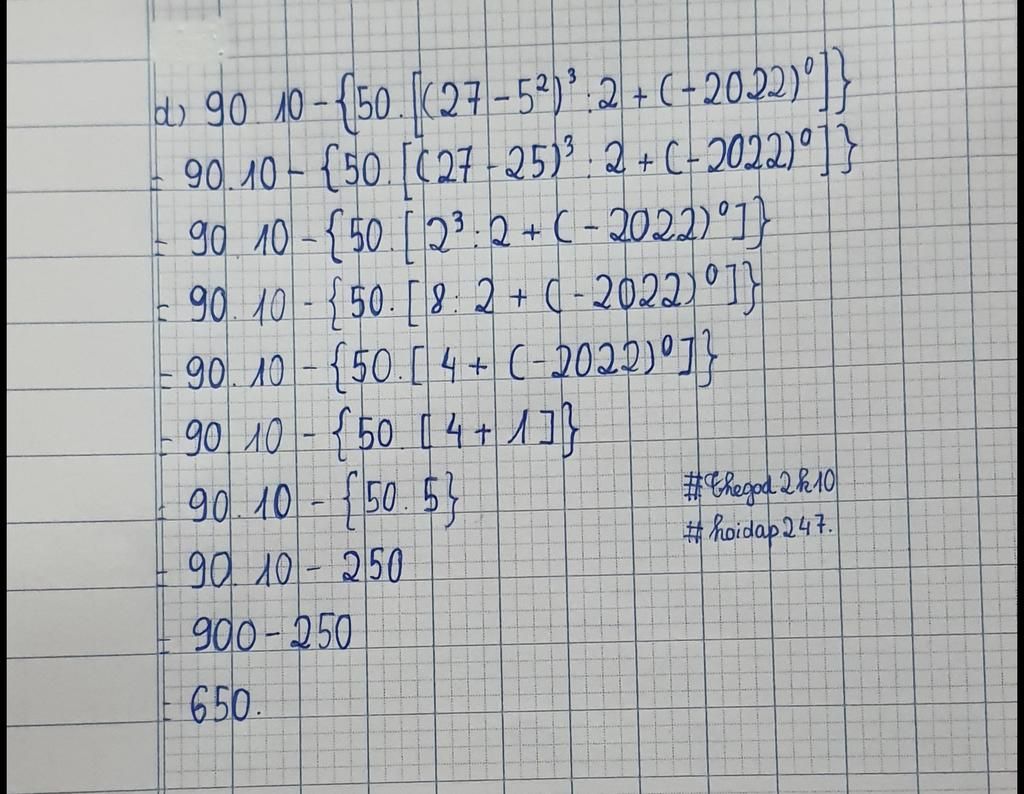 d) 90 10 - {50.[(27 - 5²)³ : 2 + (-2022)⁰]}
= 90.10 - {50.[(27 - 25)³ : 2 + (-2022)⁰]}
= 90.10 - {50.[2³ : 2 + (-2022)⁰]}
= 90.10 - {50.[8 : 2 + (-2022)⁰]}
= 90.10 - {50.[4 + (-2022)⁰]}
= 90 10 - {50 [4 + 1]}
= 90.10 - {50.5}
= 90.10 - 250
= 900 - 250
= 650.
#thegod2k10
#hoidap247.